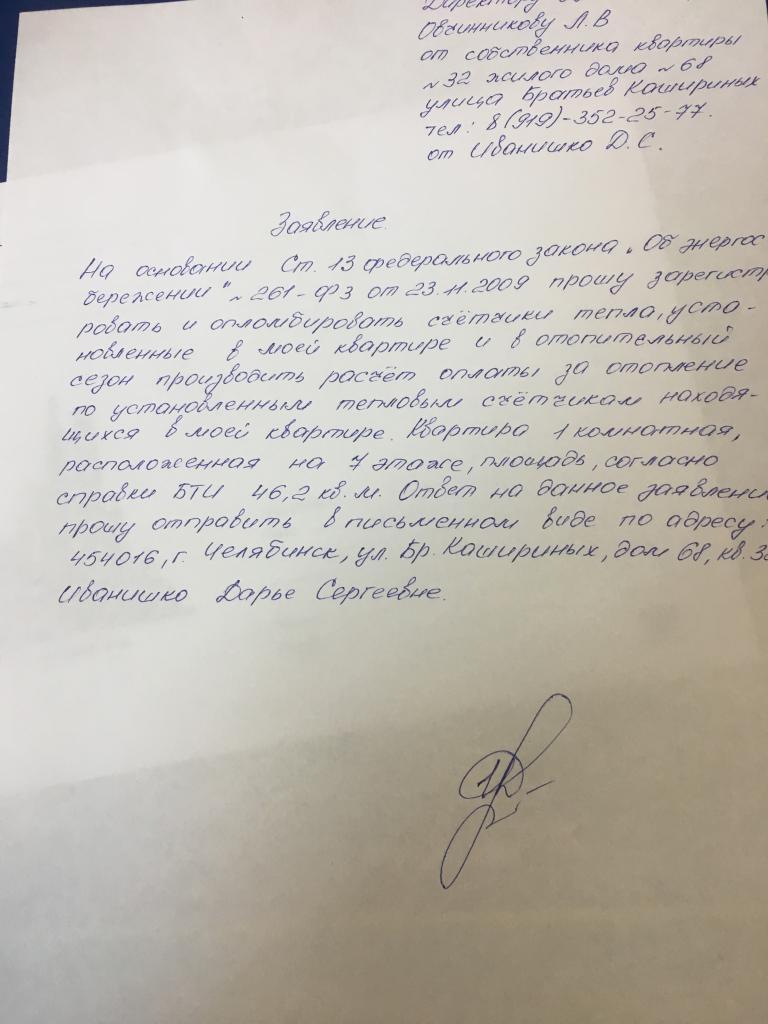 Директору
Овчинникову Л.В
от собственника квартиры
№32 жилого дома №68
улица Братьев Кашириных
тел: 8(919)-352-25-77.
от Иванишко Д.С.
Заявление.
На основании Ст. 13 федерального закона „Об энергос
бережении" №261-ФЗ от 23.11.2009 прошу зарегистр
ровать и опломбировать счётчики тепла, уста-
новленные в моей квартире и в отопительный
сезон производить расчёт оплаты за отопление
по установленным тепловым счётчикам находя-
щихся в моей квартире. Квартира 1 комнатная,
расположенная на 7 этаже, площадь, согласно
справки БТИ 46,2 кв.м. Ответ на данное заявлени
прошу отправить в письменном виде по адресу:
454016, г. Челябинск, ул. Бр. Кашириных, дом 68, кв. 32
Иванишко Дарье Сергеевне.